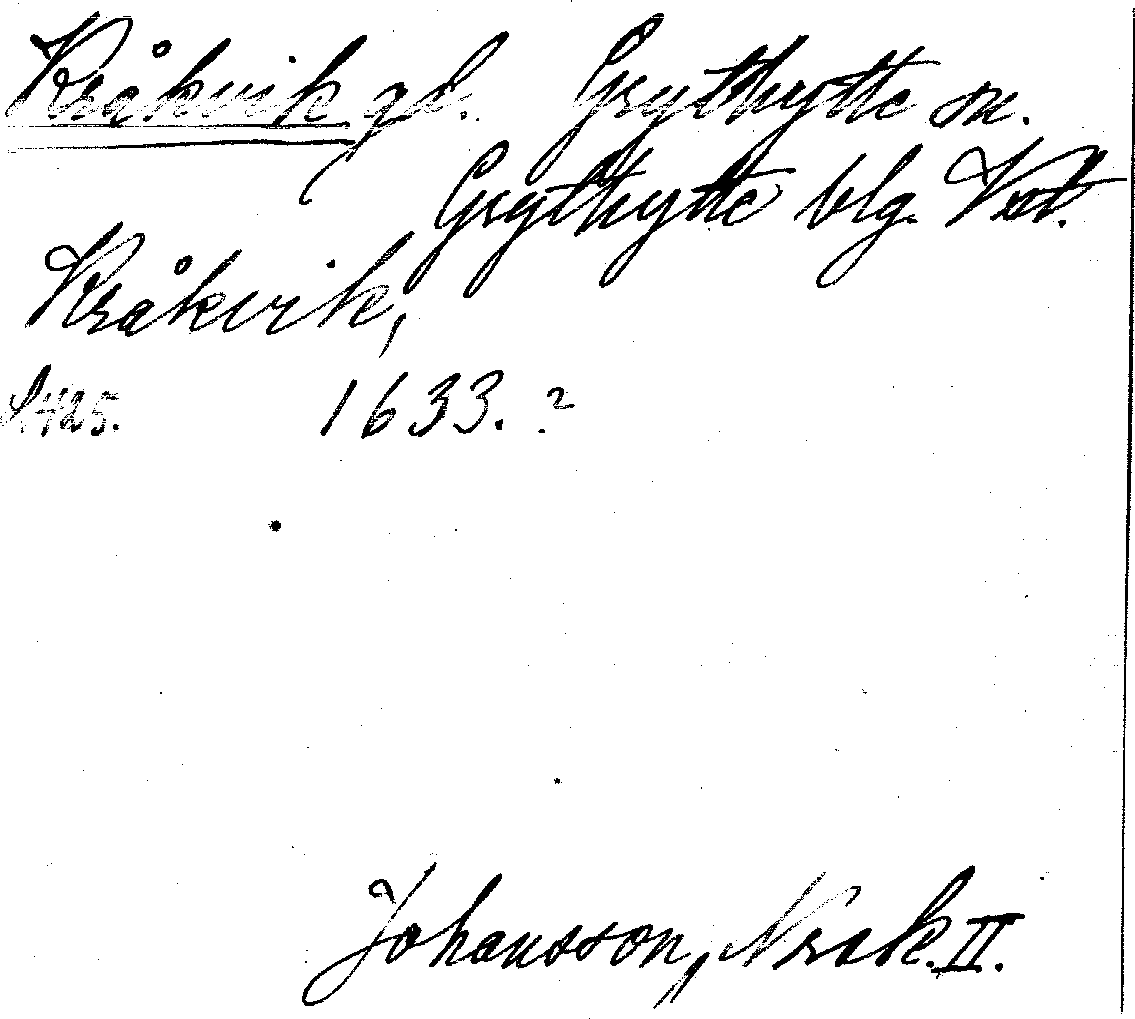 Kråkvik gd. Grythytte sn.
Grythytte blg. Vstl.
Kråkvik,
S. 425. 1633. ?
Johansson, Norask. II.